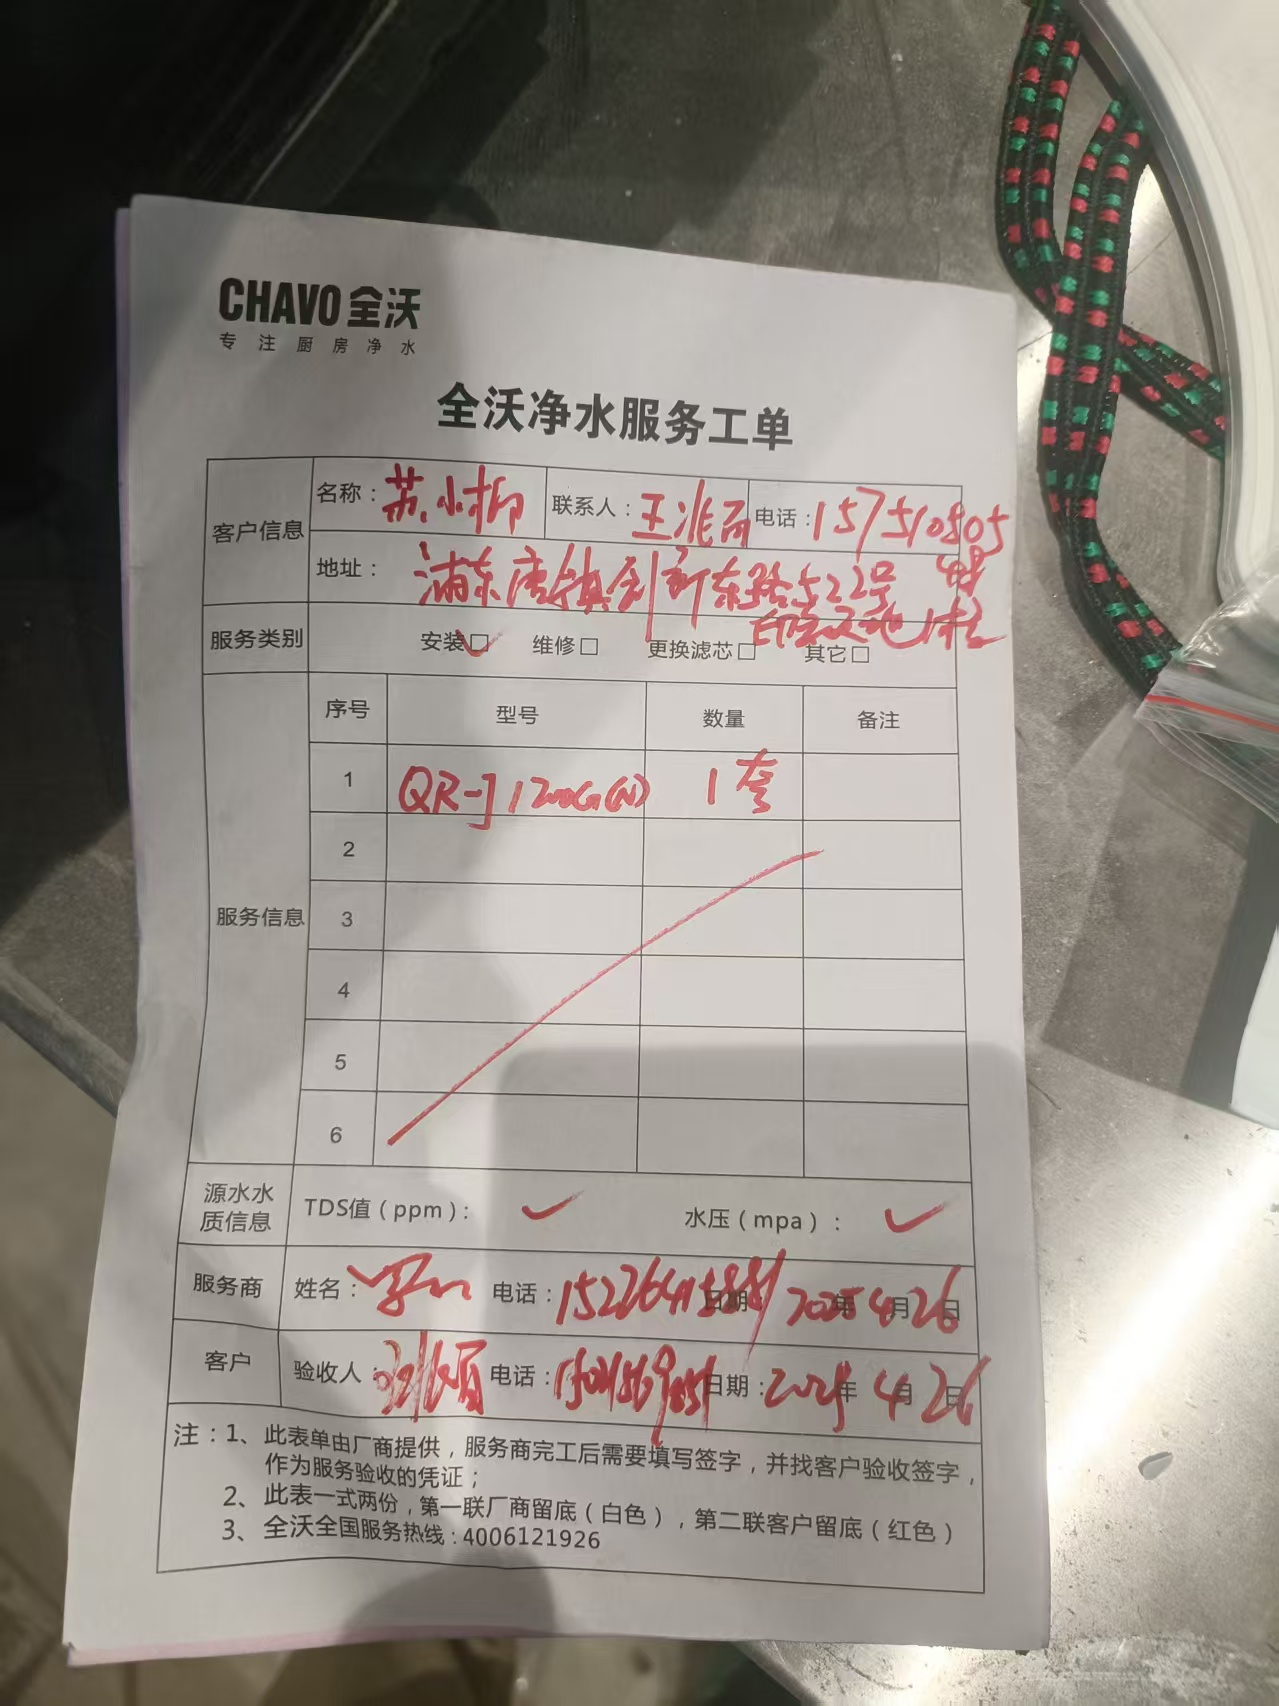 CHAVO 全沃
专注厨房净水
全沃净水服务工单
客户信息 名称：苏小柳 联系人：王兆 电话：15751080548
地址：浦东唐镇创新东路522号
1楼
服务类别 安装☑ 维修□ 更换滤芯□ 其它□
服务信息 序号 型号 数量 备注
1 QR-J1200G(N) 1套
2
3
4
5
6
源水水质信息 TDS值（ppm）：✓ 水压（mpa）：✓
服务商 姓名： 电话： 日期：2025年4月26日
客户 验收人： 电话： 日期：2025年4月26日
注：1、此表单由厂商提供，服务商完工后需要填写签字，并找客户验收签字，
作为服务验收的凭证；
2、此表一式两份，第一联厂商留底（白色），第二联客户留底（红色）
3、全沃全国服务热线：4006121926